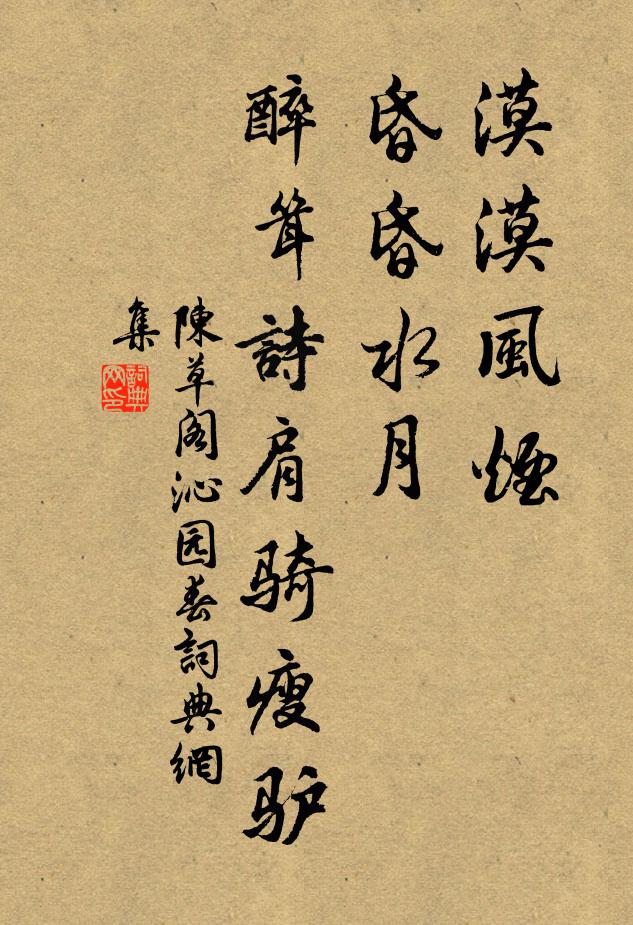 漠漠風煙
昏昏水月
醉聳詩肩騎瘦驴
陳草阁沁园春詞典網
集
詞典
网印